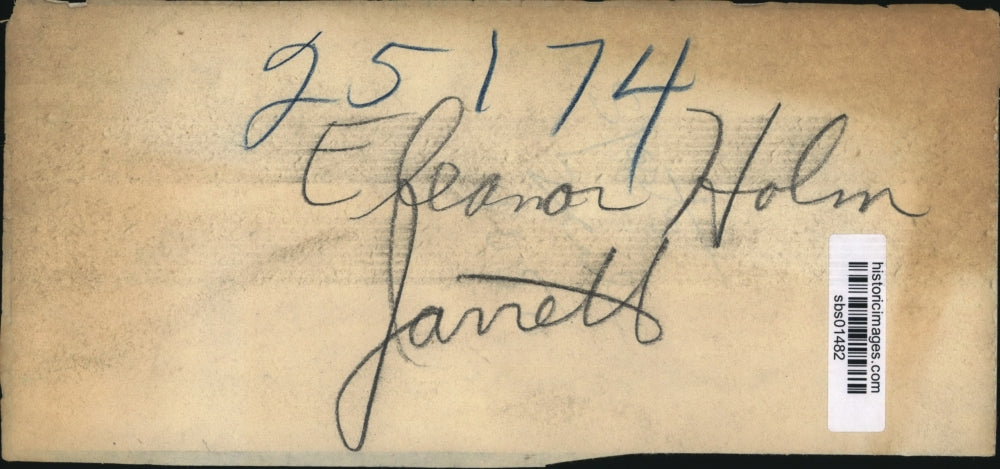 25174
Eleanor Holm
Jarrett
historicimages.com
sbs01482